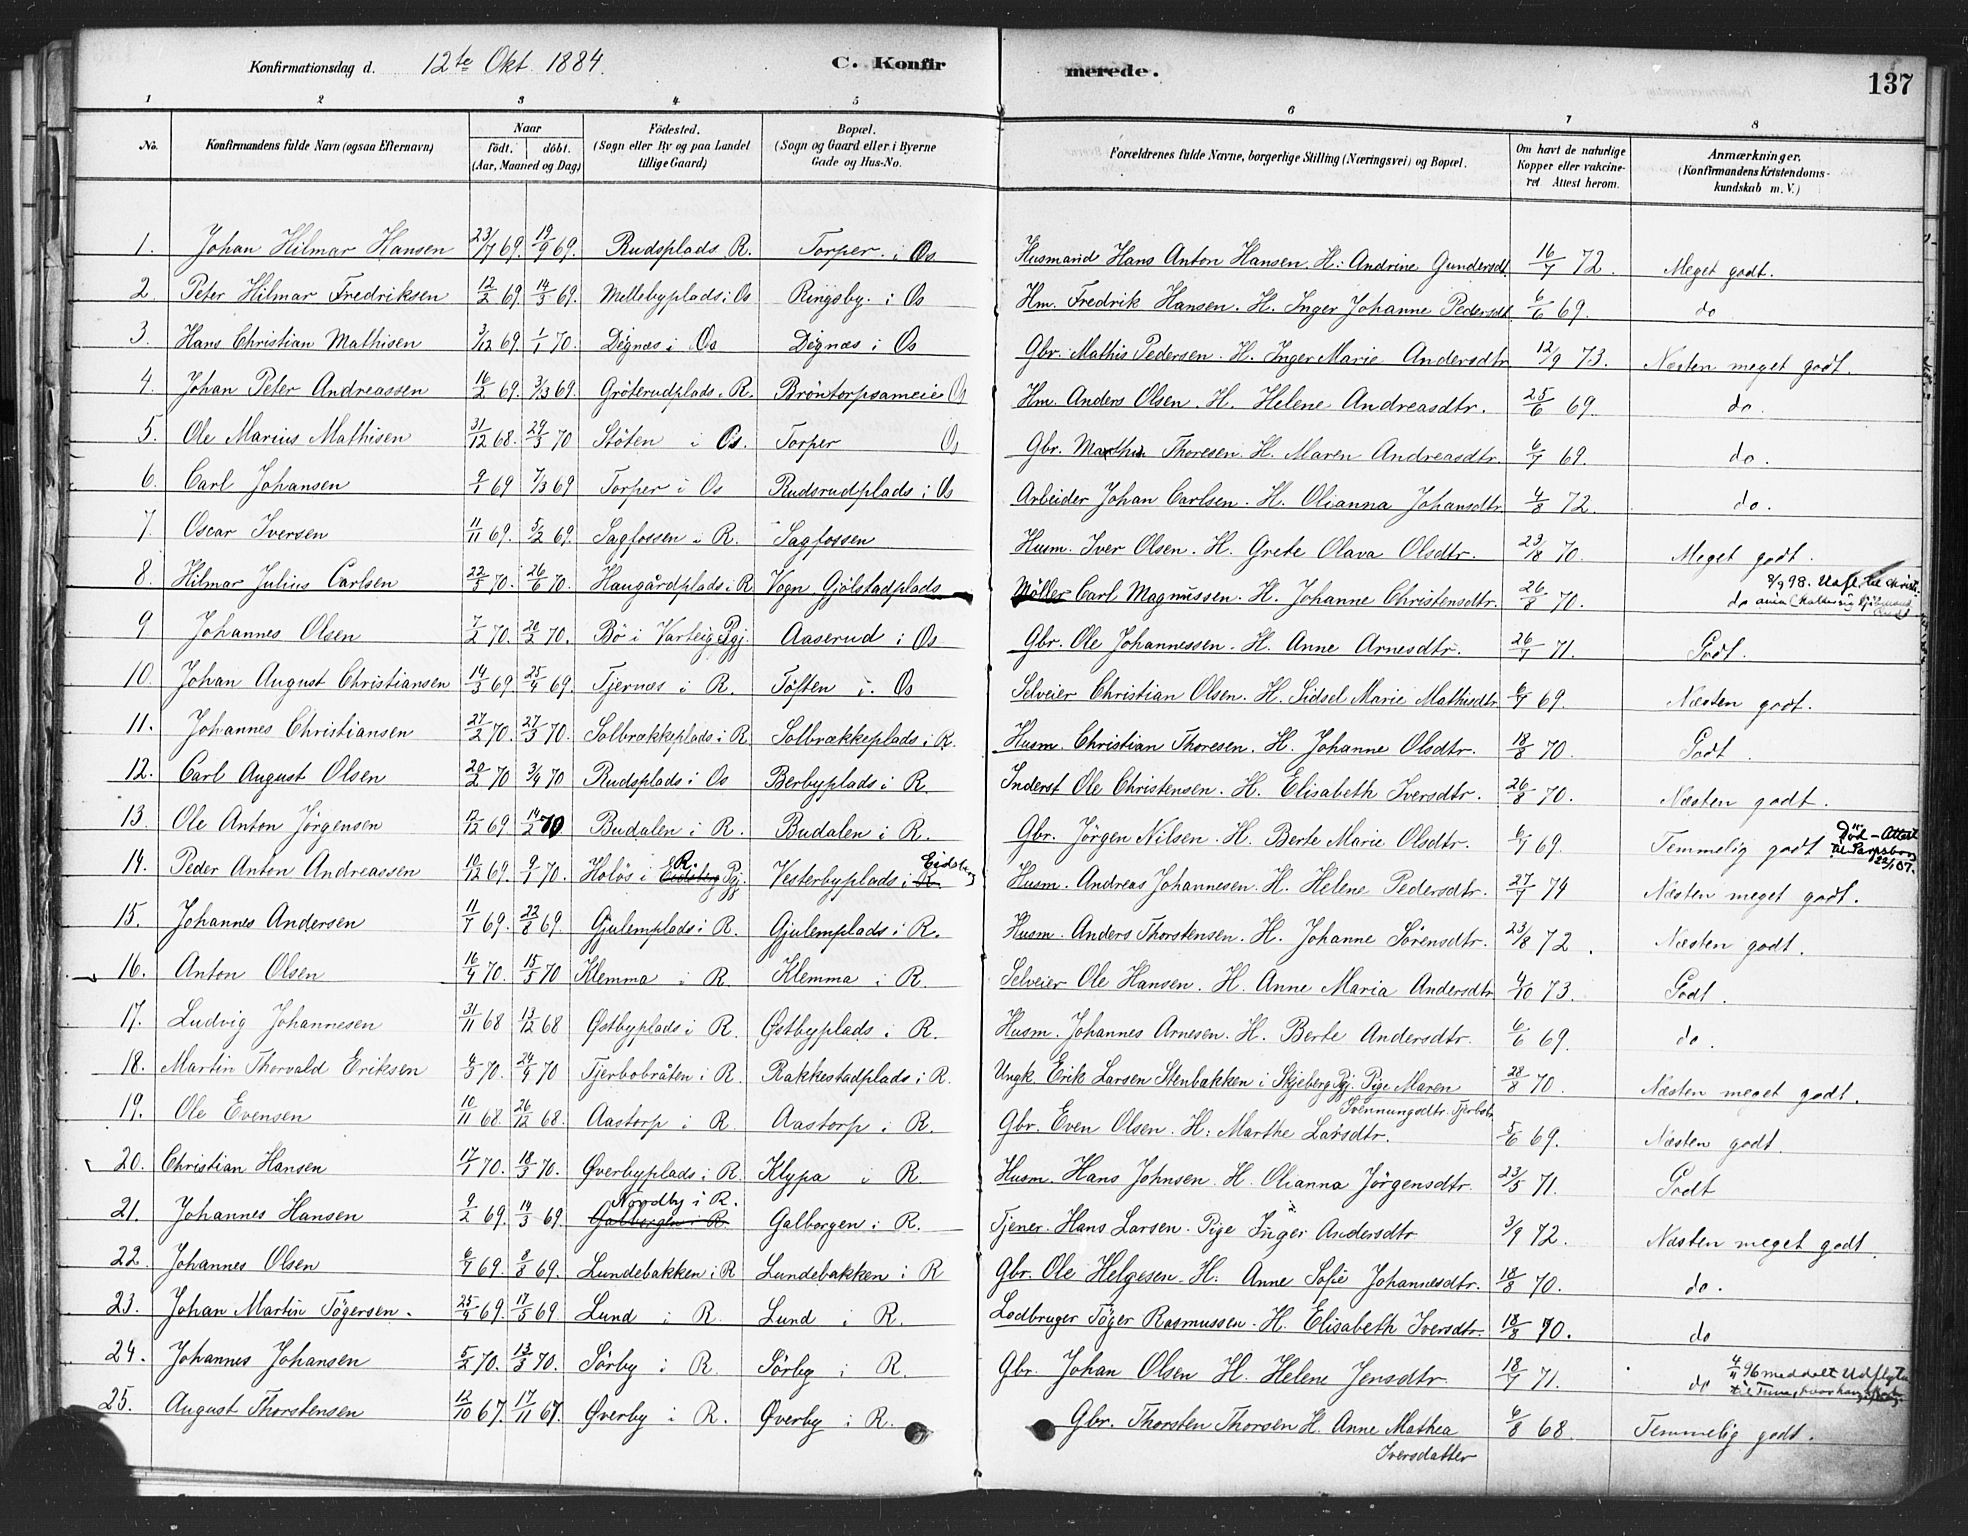 Konfirmationsdag d. 12te Okt. 1884. C. Konfirmerede. 137
1 2 3 4 5 6 7 8
No. Konfirmandens fulde Navn (ogsaa Efternavn) Naar født. døbt. (Aar, Maaned og Dag) Födested. (Sogn eller By og paa Landet tillige Gaard) Bopæl. (Sogn og Gaard eller i Byerne Gade og Hus-No. Forældrenes fulde Navne, borgerlige Stilling (Næringsvei) og Bopæl. Om havt de naturlige Kopper eller vakcineret Attest herom. Anmærkninger. (Konfirmandens Kristendomskundskab m. V.)
1. Johan Hilmar Hansen 23/7 69. 19/9 69. Rudsplads R. Torper i Os Husmand Hans Anton Hansen. H: Andrine Gundersdt. 16/7 72. Meget godt.
2. Peter Hilmar Fredriksen 12/2 69 14/3 69. Mellebyplads i Os Ringsby i Os Hm. Fredrik Hansen. H. Inger Johanne Pedersdt. 6/6 69. do
3. Hans Christian Mathisen 3/12 69. 1/1 70. Degnæs i Os Degnæs i Os Gbr. Mathis Pedersen. H. Inger Marie Andersdtr 12/9 73. Næsten meget godt.
4. Johan Peter Andreassen 16/2 69. 3/3 69. Gröterudplads. R. Bröntorpsameie Os Hm. Anders Olsen. H. Helene Andreasdtr. 25/6 69. do.
5. Ole Marius Mathisen 31/12 68. 29/3 70 Stöten i Os. Torper Os Gbr. Mathis Thoresen. H. Maren Andreasdtr. 6/7 69. do.
6. Carl Johansen 9/1 69 7/3 69 Torper i Os Rudsrudplads i Os Arbeider Johan Carlsen. H. Olianna Johansdtr. 4/8 72. do.
7. Oscar Iversen 11/11 69. 5/2 69. Sagfossen i R. Sagfossen Husm. Iver Olsen. H. Grete Olava Olsdtr. 23/8 70. Meget godt.
8. Hilmar Julius Carlsen 22/5 70. 26/6 70. Haugårdplads i R Vogn Gjölstadplads Möller Carl Magnussen. H. Johanne Christensdtr. 26/8 70. do 8/9 98. Udfl. til Christiania
9 Johannes Olsen 7/2 70. 20/2 70. Bö i Varteig Pgj. Aaserud i Os Gbr. Ole Johannessen. H. Anne Arnesdtr. 26/7 71. Godt.
10. Johan August Christiansen 14/3 69. 25/4 69. Tjernæs i R. Töften i. Os Selveier Christian Olsen. H. Sidsel Marie Mathisdtr. 6/7 69. Næsten godt.
11. Johannes Christiansen 27/2 70. 27/3 70. Solbrækkeplads i R. Solbrækkeplads i R. Husm. Christian Thoresen. H. Johanne Olsdtr. 18/8 70. Godt.
12. Carl August Olsen 20/2 70 3/4 70 Rudsplads i Os Berbyplads i R. Inderst Ole Christensen. H. Elisabeth Iversdtr. 26/8 70. Næsten godt.
13. Ole Anton Jörgensen 12/12 69 14/2 70 Budalen i R. Budalen i R. Gbr. Jörgen Nilsen. H. Berte Marie Olsdtr. 6/7 69. Temmelig godt Död - Attest til Sarpsborg 22/1 07.
14. Peder Anton Andreassen 10/12 69. 9/1 70. Holös i Eidsberg R Pgj. Vesterbyplads i R. Eidsberg Husm. Andreas Johannesen. H. Helene Pedersdtr. 27/7 74 Næsten meget godt.
15. Johannes Andersen 11/7 69. 22/8 69. Gjulemplads i R. Gjulemplads i R. Husm. Anders Thorstensen. H. Johanne Sörensdtr. 23/8 72. Næsten godt.
16. Anton Olsen 16/4 70. 15/5 70 Klemma i R. Klemma i R. Selveier Ole Hansen. H. Anne Maria Andersdtr 9/10 73. Godt.
17. Ludvig Johannesen 31/11 68 13/12 68 Østbyplads i R. Østbyplads i R. Husm. Johannes Arnesen. H. Berte Andersdtr. 6/6 69. do.
18. Martin Thorvald Eriksen 9/3 70. 24/4 70 Tjerbobråten i R. Rakkestadplads i R. Ungk. Erik Larsen Stenbakken i Skjeberg Pgj. Pige Maren Svenningsdtr. Tjerbobr. 28/8 70. Næsten meget godt.
19. Ole Evensen 10/11 68. 26/12 68. Aastorp i R. Aastorp i R. Gbr. Even Olsen. H: Marthe Larsdtr. 5/6 69. Næsten godt.
20. Christian Hansen 17/1 70. 18/3 70. Øverbyplads i R. Klypa i R. Husm. Hans Johnsen. H. Olianna Jörgensdtr. 23/5 71. Godt
21. Johannes Hansen 9/2 69. 14/3 69. Galborgen i R. Nordby i R. Galborgen i R. Tjener. Hans Larsen. Pige Inger Andersdtr 3/9 72. Næsten meget godt.
22. Johannes Olsen 6/7 69. 8/8 69. Lundebakken i R Lundebakken i R Gbr. Ole Helgesen. H: Anne Sofie Johannesdtr. 18/8 70. do.
23. Johan Martin Tögersen. 25/4 69. 17/5 69 Lund i R. Lund i R. Lodbruger Töger Rasmussen. H. Elisabeth Iversdtr. 18/8 70. do
24. Johannes Johansen 5/2 70. 13/3 70. Sörby i R. Sörby i R. Gbr. Johan Olsen H. Helene Jensdtr. 18/7 71. do 4/11 96 meddelt Udflytn. til Tune
25. August Thorstensen 12/10 67. 17/11 67. Øverby i R. Øverby i R. Gbr. Thorsten Thorsen H. Anne Mathea Iversdatter 6/8 68. Temmelig godt.